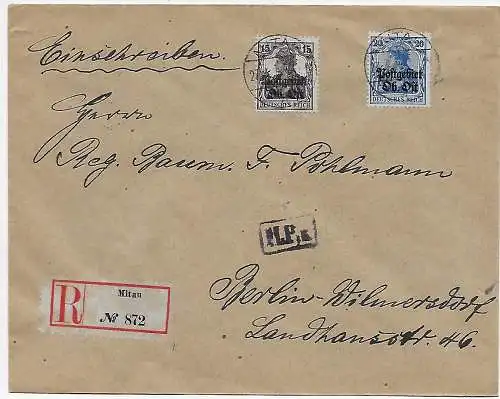 15 15
Postgebiet
Ob. Ost
DEUTSCHES REICH
20 20
Postgebiet
Ob. Ost
DEUTSCHES REICH
Einschreiben.
Herrn
Reg. Baum. F. Pohlmann
M.P.k
Berlin-Wilmersdorf
Landhausstr. 46.
R
Mitau
№ 872